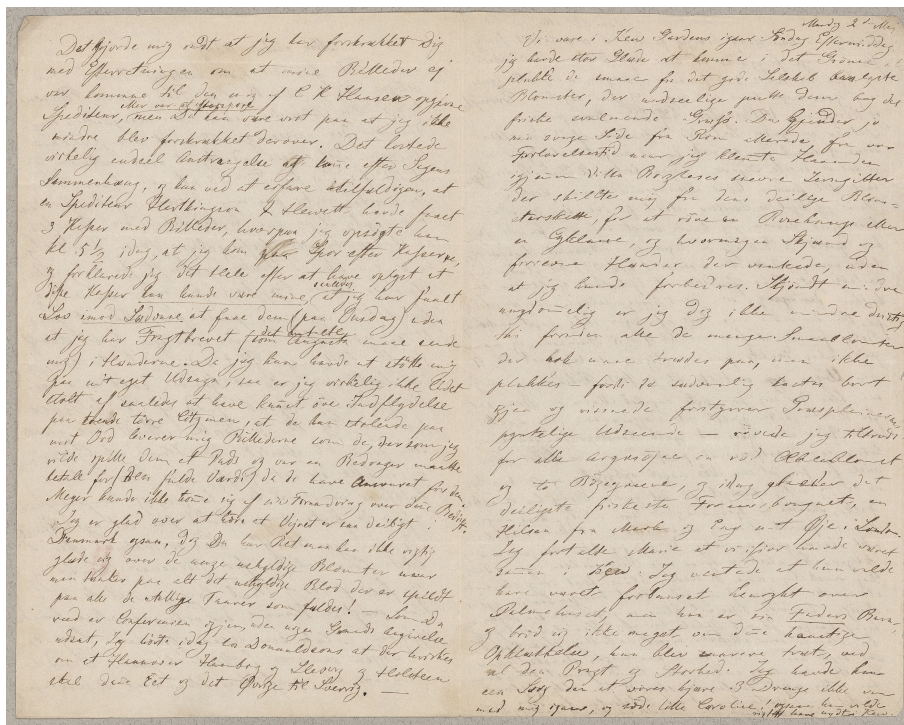 Det gjorde mig ondt at jeg har forskrækket Dig
med Efterretningen om at mine Billeder ej
var komne til den mig af C K Hansen opgivne
eller var at opspore
Spediteur, men Du kan være vis paa at jeg ikke
mindre blev forskrækket derover. Det kostede
virkelig endeel Anstrængelse at komme efter Sagens
Sammenhæng, og kun ved at erfare tilfældigen, at
en Spediteur Hertkingson & Hewett havde faaet
3 Kasser med Billeder, hvorpaa jeg opsøgte ham
Kl 5½ idag, at jeg kom paa Spor efter Kasserne,
og forklarede jeg det Hele efter at have oplyst at
disse Kasser kun kunde være mine, at jeg har faaet
Lov imod Sædvane at faae dem (paa Onsdag) uden
at jeg har Fragtbrevet (som Augusta maae sende
mig) i Hænderne. Da jeg kun havde at støtte mig
paa mit eget Udsagn, saa er jeg virkelig ikke lidet
stolt af saaledes at have kunnet øve Indflydelse
paa tvende tørre Citymen, at de kun stolende paa
mit Ord leverer mig Billederne som de, dersom jeg
vilde spille dem et Puds og var en Bedrager maatte
betale for den fulde Værdi da de have
Meyer kunde ikke komme sig af sin Forundring over dine
Jeg er glad over at høre at Vejret er saa deiligt i
Danmark ogsaa, dog Du har Ret man kan ikke rigtig
glæde sig over de unge uskyldige Blomster naar
man tænker paa alt det uskyldige Blod der er spildt
paa alle de Taarer som fældes! — Som Du
veed er Conferencen igjen, uden nogen Grunds Angivelse
udsat, Jeg hørte idag en Donaldsons at der hviskes
om et Hannover Hamborg og Slesvig og Holsteen
skal danne Eet og det Øvrige til Sverrig. —
Mandag 2d May
Vi vare i Kew Gardens igaar Søndag Eftermiddag
jeg havde stor Glæde at komme i det Grønne!
plukke de smaae for det gode Selskab
Blomster, der nedseelige putte dem bag det
friske svulmende Græs. Du kjender jo
en svage Side fra Rom Marede, fra vor
Forlovelsestid naar jeg klemte Haanden
igjennem Villa Borgheses snevre Jerngitter
der skillte mig fra dens deilige Blom-
sterskatte, for at røve en Roseknoppe eller
en Cyklame, og hvormegen Skjænd og
forrevne Hænder der vankede, uden
at jeg kunde forbedres. Skjøndt mindre
ungdommelig er jeg dog ikke mindre
thi foruden alle de mange Smaablomster
der nok vare trædes paa, men ikke
plukkes — fordi de sædvanlig kastes bort
igjen og visnede forstyrrer Grønsplainernes
pyntelige Udseende — røvede jeg tiltrods
for alle Argusøjne en rød Æbleblomst
og to Bøgegrene, og idag glæder det
deiligste friskeste Foraarsbouquet, en
Hilsen fra Mark og Eng mit Øje i London.
Jeg fortalte Marie at vi ifjor havde været
sammen i Kew. Jeg ventede at hun vilde
have været fortumlet henrykt over
Palmehuset, men hun er sin Faders Barn,
og brød sig ikke meget om denne kunstige
Opklækkelse, hun blev snarere træt, ved
al den Pragt og Storhed. Jeg havde kun
een Sorg den at vores kjære 3 Drenge ikke var
med mig igaar, og søde lille Caroline! ogsaa hun vilde
rigtig have nydt i Kew.